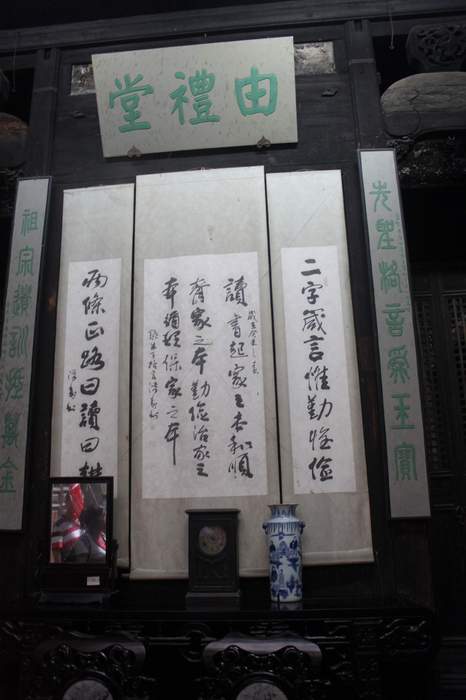 由禮堂
先聖格言玉寶
二字箴言惟勤惟儉
讀書起家之本和順
齊家之本勤儉治家之
本循理保家之本
兩條正路曰讀曰耕
祖宗遺訓金